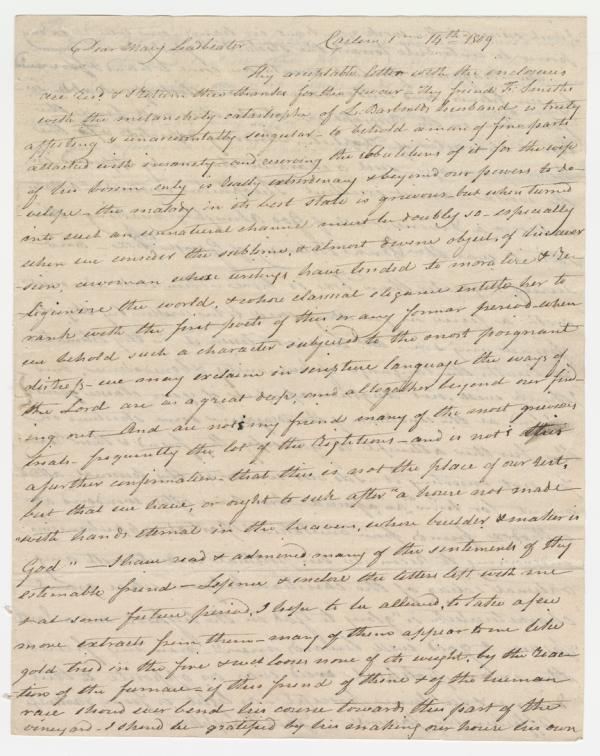 Dear Mary Leadbeater Carlow 1 mo 14th 1809
Thy acceptable letter with the enclosures
are recd. & I return thee thanks for the favour - Thy friend Js. Smiths
with the melancholy catastrophe of L: Barbaulds husband is truly
affecting & unaccountably singular - to behold a man of fine parts
attacked with insanity - and evincing the ebulitions of it for the wife
of his bosom only is really extraordinary & beyond our powers to de-
-velope - the malady in its best state is grievous but when turned
into such an unnatural channel must be doubly so - especially
when we consider the sublime, & almost divine object, of his aver
sion, a woman whose writings have tended to moralize & re-
ligionize the world, & whose classical elegance entitle her to
rank with the first poets of this or any former period - when
we behold such a character subjected to the most poignant
distress - we may exclaim in scripture language the ways of
the Lord are as a great deep, and altogether beyond our find-
ing out - And are not my friend many of the most grievous
trials - frequently the lot of the Righteous - and is not this
a further confirmation - that this is not the place of our rest,
but that we have, or ought to seek after "a house not made
"with hands eternal in the heavens, whose builder & maker is
God" - I have read & admired many of the sentiments of thy
estimable friend - & inclose the letters left with me
& at some future period, I hope to be allowed, to take a few
more extracts from them - many of them appear to me like
gold tried in the fire & looses none of its weight, by the reac
tion of the furnace - if this friend of thine & of the human
race should ever bend his course towards this part of the
vineyard - I should be gratified by his making our house his own